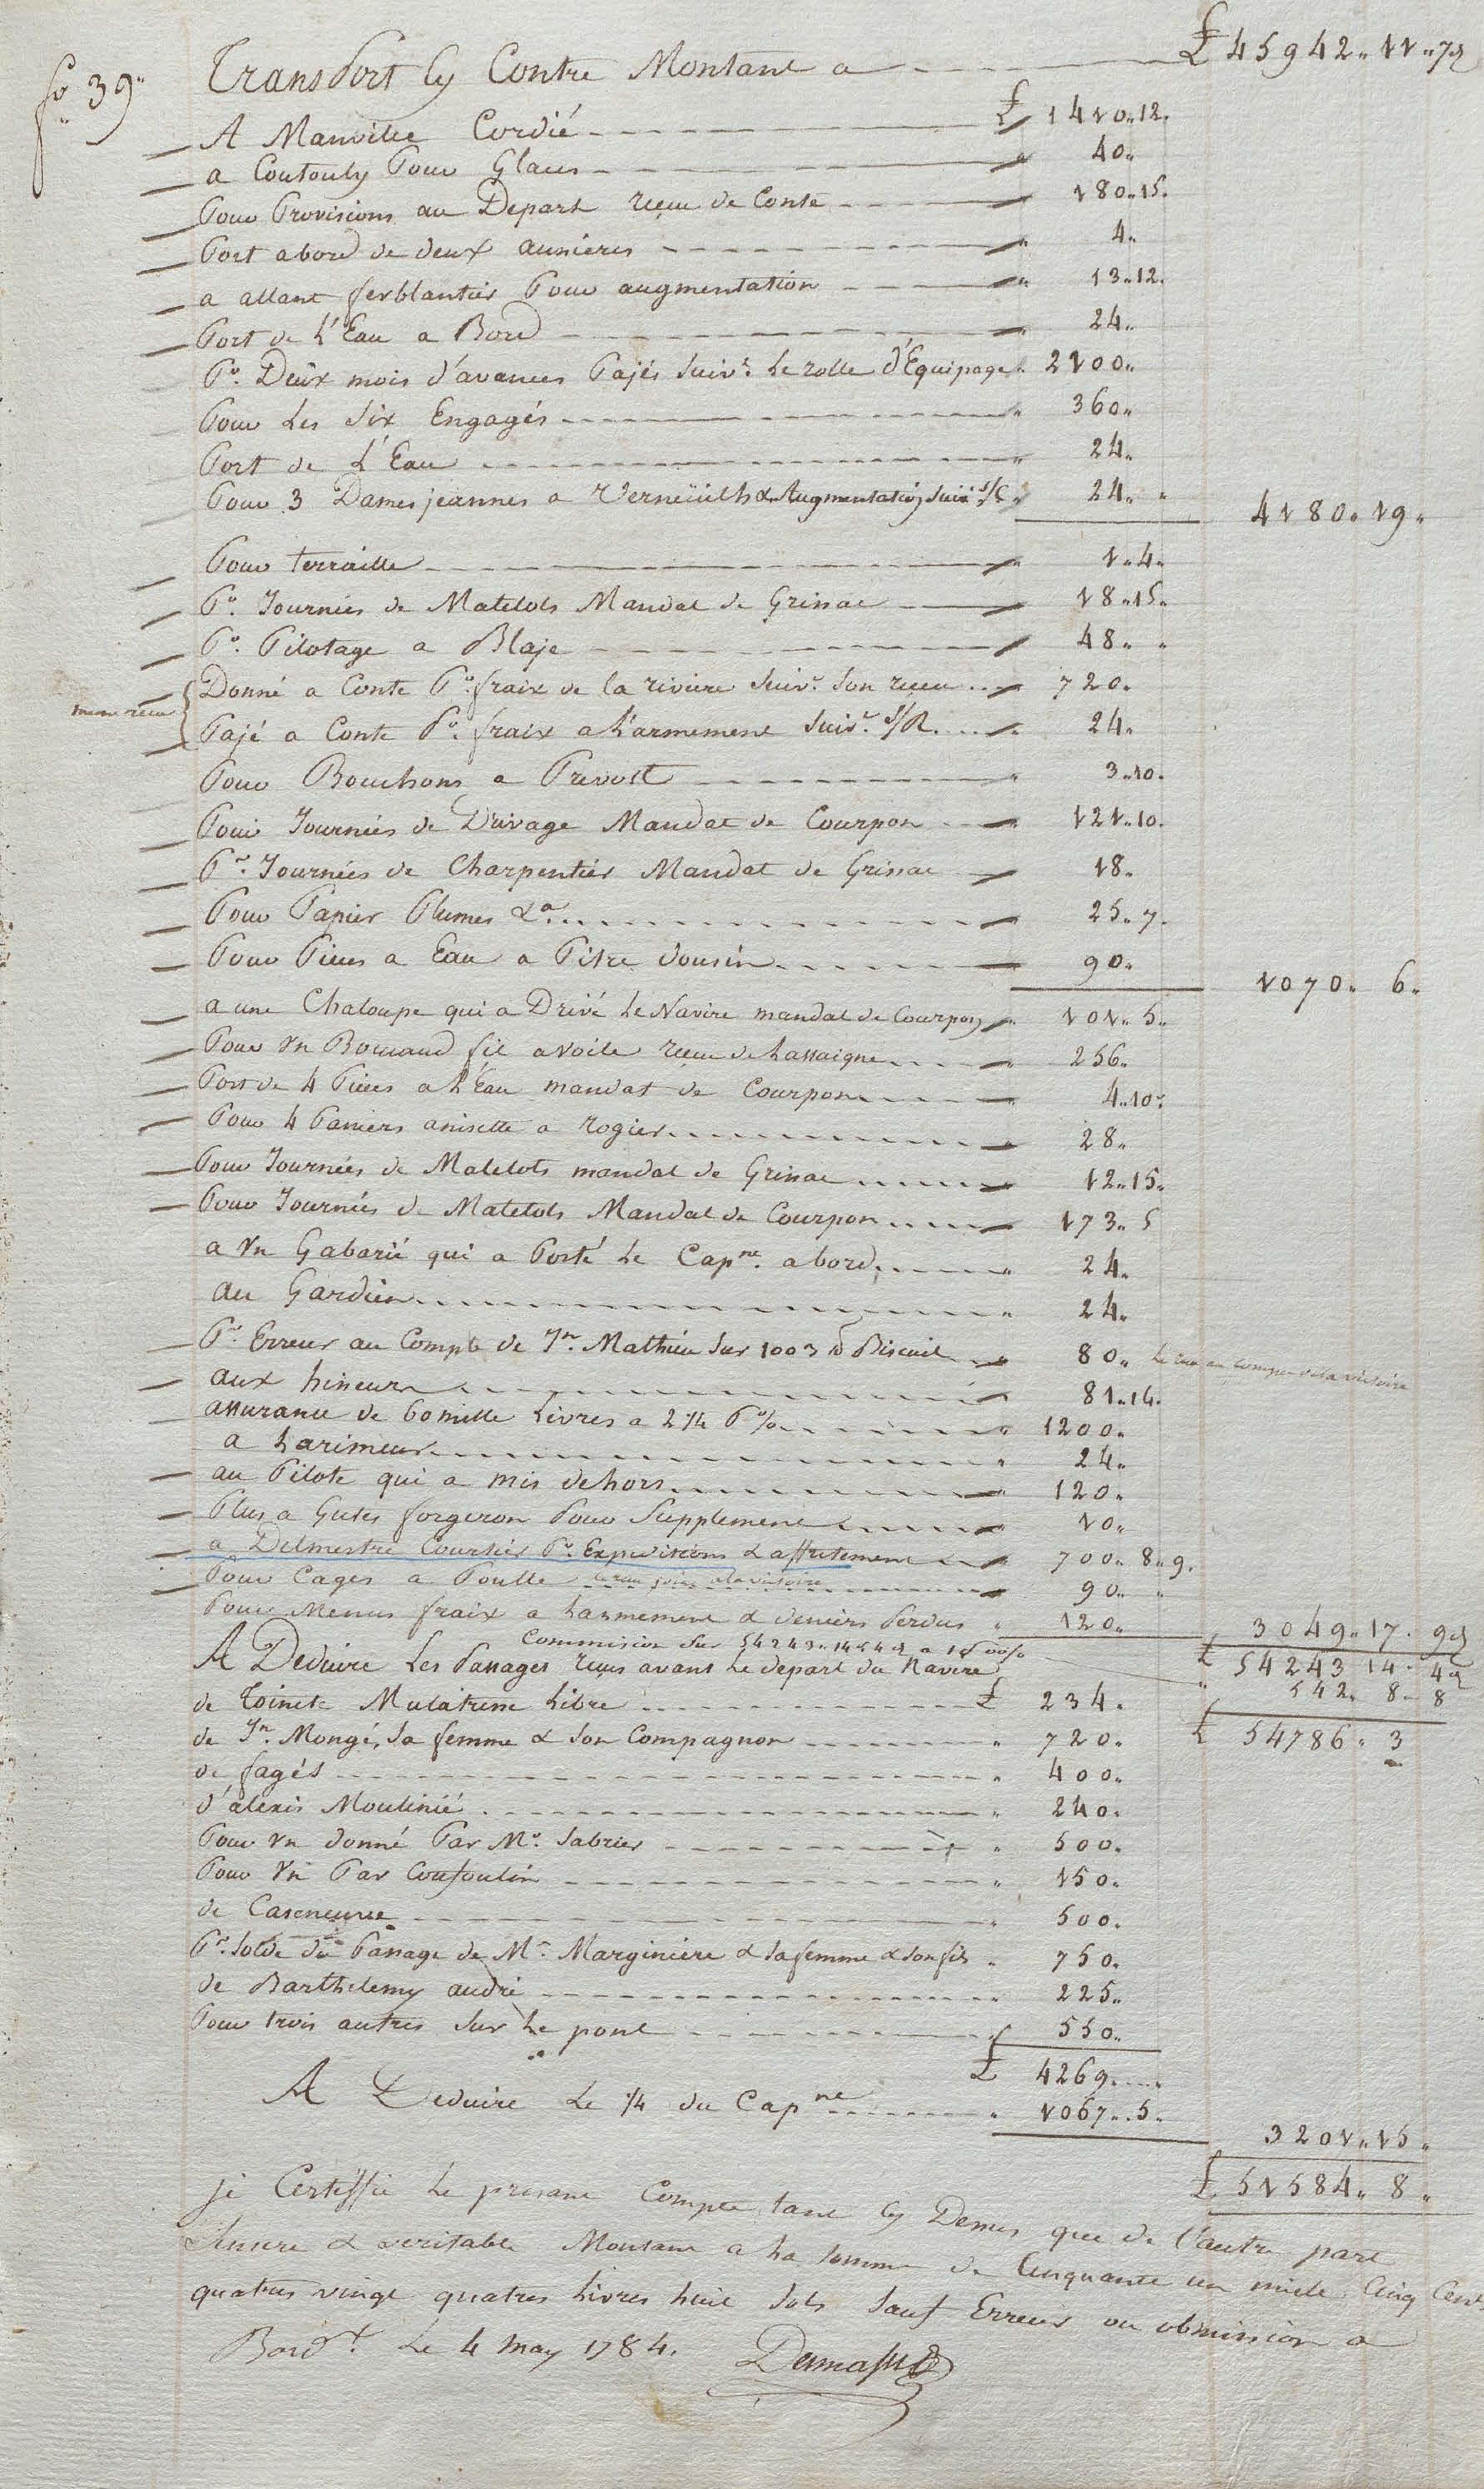 fo. 39
Transport Cy Contre Montant a £ 45942.. 11.. 7d
A Manville Cordié £ 1410.. 12.
a Coutouly Pour Glaces 40..
Pour Provisions au Depart reçeu de Conte 180.. 15.
Port abord de deux aussieres 4..
a allant ferblantier Pour augmentation 13.. 12.
Port de L'Eau a Bord 24..
Pr. Deüx mois d'avances Pajés suivt. Le rolle d'Equipage 2100..
Pour Les Six Engagés 360..
Port de L'Eau 24..
Pour 3 Damesjeannes a Verneüilh & Augmentation suivt. s/C 24.. " 4180.. 19..
Pour terraille 1.. 4..
Pr. Journées de Matelots Mandat de Grissac 18.. 15..
Pr. Pilotage a Blaje 48.. "
Donné a Conte Pr. fraix de la riviere suivt. son reçeu 720.
meme reçeu
Pajé a Conte Pr. fraix a L'armement suivt. s/R. 24..
Pour Bouchons a Prevost 3.. 10.
Pour Journées de Drivage Mandat de Courpon 121.. 10.
Pr. Journées de Charpentier Mandat de Grissac 18.
Pour Papier Plumes &a. 25.. 7.
Pour Pieces a Eau a Pitre Cousin 90.. 1070.. 6..
a une Chaloupe qui a Drivé Le Navire mandat de Courpon 101.. 5..
Pour Vn Boucaud fil a voile reçeu de Lassaigne 256..
Port de 4 Pieces a L'Eau mandat de Courpon 4.. 10.
Pour 4 Paniers anisette a rogier 28..
Pour Journées de Matelots mandat de Grissac 12.. 15..
Pour Journées de Matelots Mandat de Courpon 173.. 5
a Vn Gabarié qui a Porté Le Capne. abord 24..
au Gardien 24..
Pr. Erreur au Compte de Jn. Mathieu sur 1003 lb Biscuit 80.. Le reçu au compte de la victoire
aux hisseurs 81.. 14.
assurance de 60 mille Livres a 2 1/4 P% 1200..
a Larimeur 24..
au Pilote qui a mis dehors 120..
Plus a Gutes forgeron Pour Supplement 10..
a Delmestre Courtier Pr. Expeditions & affretement 700.. 8.. 9.
Pour Cages a Poulle le reçu joint a la victoire 90.. "
Pour Menus fraix a Larmement & deniers Perdus 120.. 3049.. 17. 9d
£ 54243 14. 4d
Commission sur 54243.. 14s 4d a 1 P% " 542.. 8.. 8
£ 54786.. 3
A Deduire Les Passages reçus avant Le depart du Navire
de Toinete Mulatresse Libre £ 234.
de Jn. Mongé, Sa femme & Son Compagnon 720.
de fagés 400..
d'alexis Moulinié 240.
Pour Vn donné Par Mr. Sabrier 500.
Pour Vn Par Coufoulin 150.
de Caseneuve 500.
Pr. Solde du Passage de Mr. Marginiere & Sa femme & Son fils 750.
de Barthelemy audré 225..
Pour trois autres Sur Le pont 550..
£ 4269....
A Deduire Le 1/4 du Capne 1067.. 5.. 3201.. 15..
£ 51584.. 8..
je Certiffie Le present Compte tant Cy Dessus que de L'autre part
Sincere & veritable Montant a La Somme de Cinquante un mille Cinq Cent
quatres vingt quatres Livres huit Sols Sauf Erreur ou obmission a
Bordx. Le 4 may 1784.